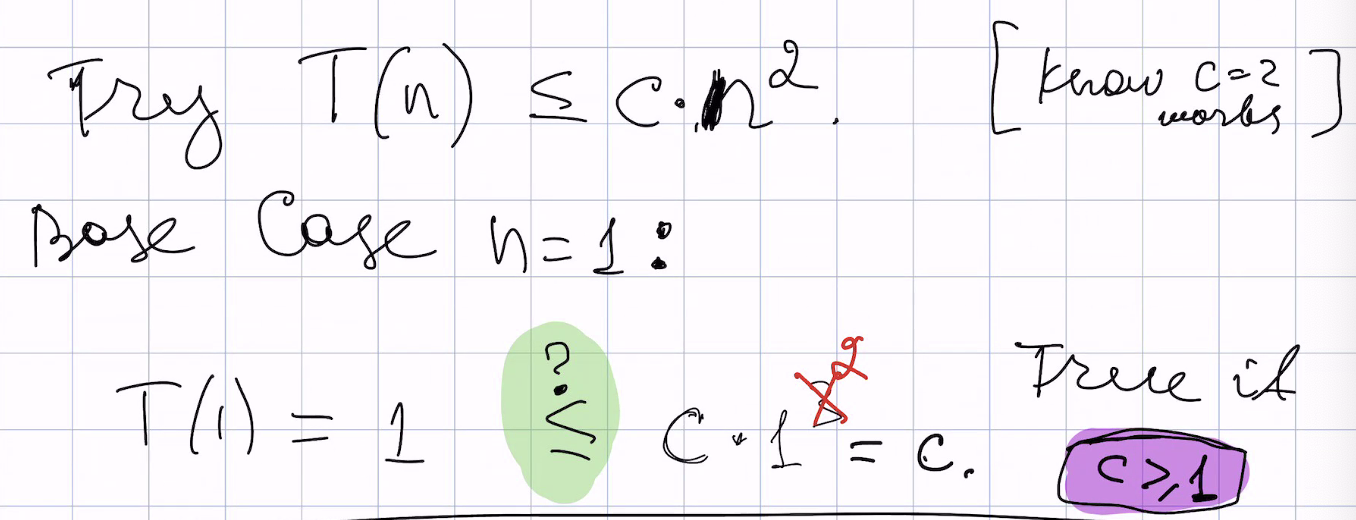 Try T(n) ≤ c·n². [know c=2
works]
Base Case n=1:
T(1) = 1 ≤? c·1² = c. True if
c ≥ 1